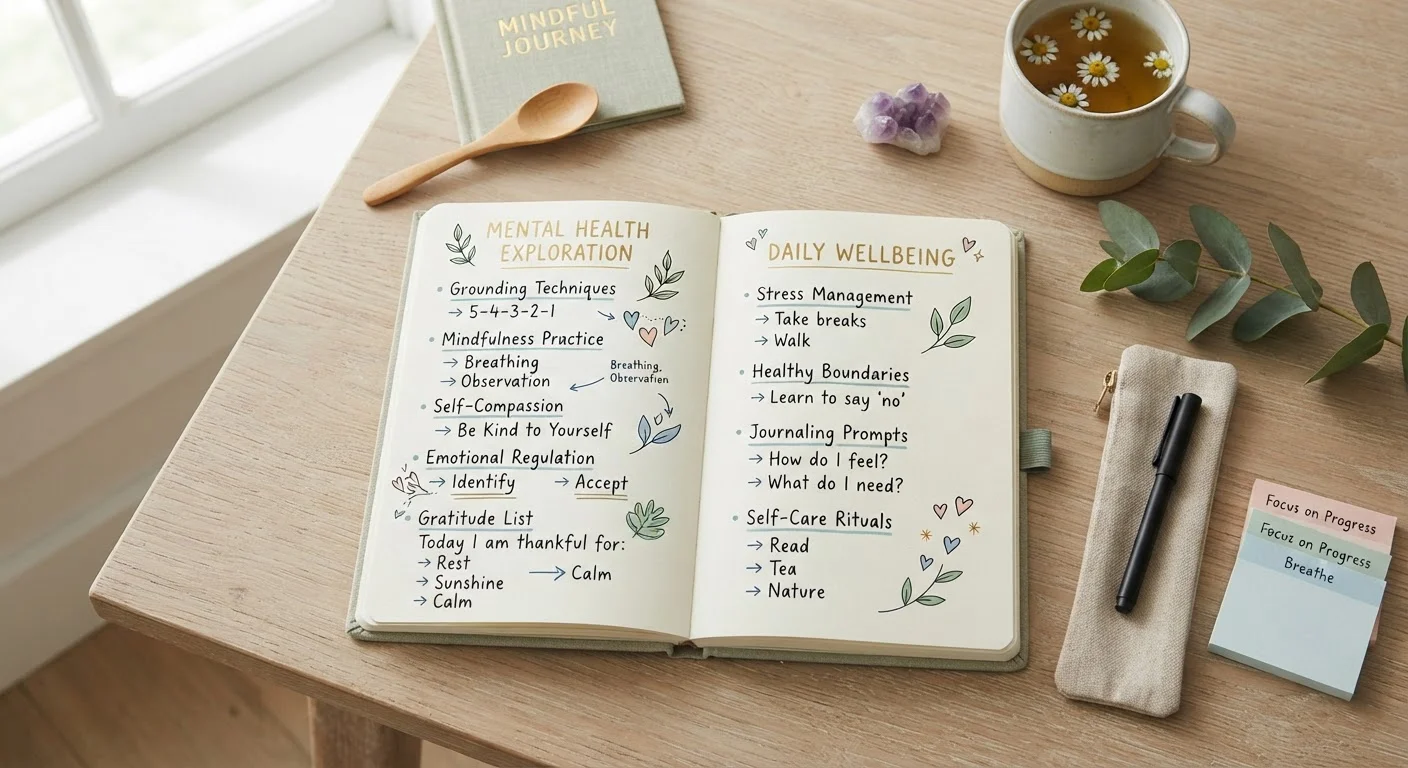 MINDFUL
JOURNEY
MENTAL HEALTH
EXPLORATION
Grounding Techniques
→ 5-4-3-2-1
Mindfulness Practice
→ Breathing
→ Observation
Breathing.
Obtervatien
Self-Compassion
→ Be Kind to Yourself
Emotional Regulation
→ Identify → Accept
Gratitude List
Today I am thankful for:
→ Rest
→ Sunshine
→ Calm
→ Calm
DAILY WELLBEING
Stress Management
→ Take breaks
→ Walk
Healthy Boundaries
→ Learn to say 'no'
Journaling Prompts
→ How do I feel?
→ What do I need?
Self-Care Rituals
→ Read
→ Tea
→ Nature
Focus on Progress
Focuz on Progress
Breathe